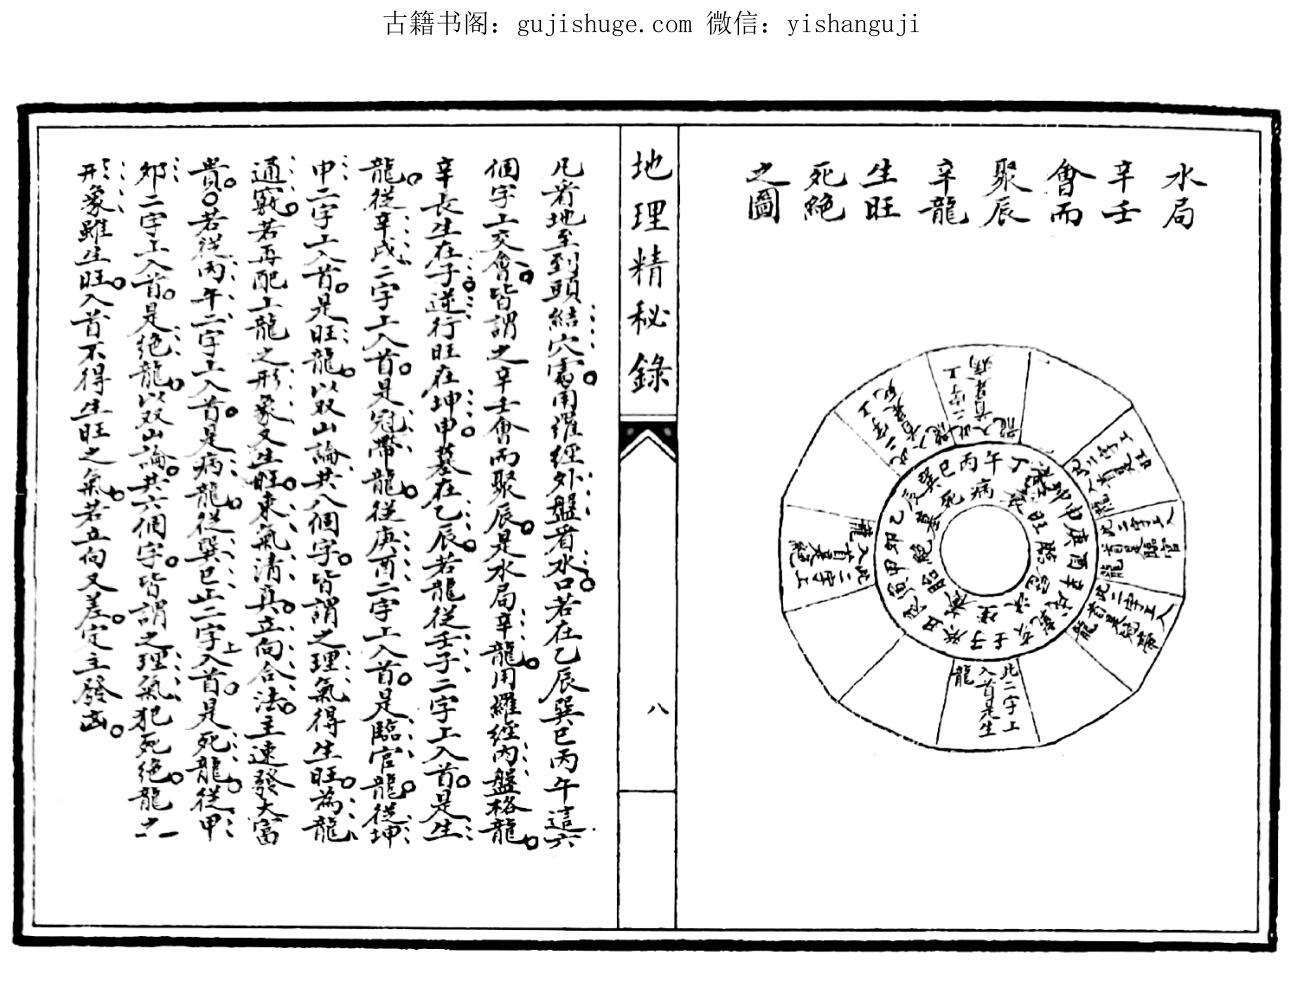 古籍书阁：gujishuge.com 微信：yishanguji
水局
辛壬
會而
聚辰
辛龍
生旺
死絕
之圖
此二字上
入首是生
龍
巽巳丙午丁
地理精秘錄
八
凡看地至到頭結穴處用羅經外盤看水口若在乙辰巽巳丙午這六
個字上交會皆謂之辛壬會而聚辰是水局辛龍用羅經內盤格龍
辛長生在子逆行旺在坤申墓在乙辰若龍從壬子二字上入首是生
龍從辛戌二字上入首是冠帶龍從庚酉二字上入首是臨官龍從坤
申二字上入首是旺龍以双山論共八個字皆謂之理氣得生旺為龍
通竅若再配上龍之形象又生旺東氣清真立向合法主速發大富
貴若從丙午二字上入首是病龍從巽巳二字上入首是死龍從甲
夘二字上入首是絕龍以双山論共六個字皆謂之理氣犯死絕龍之
形象雖生旺入首不得生旺之氣若立向又差定主發凶